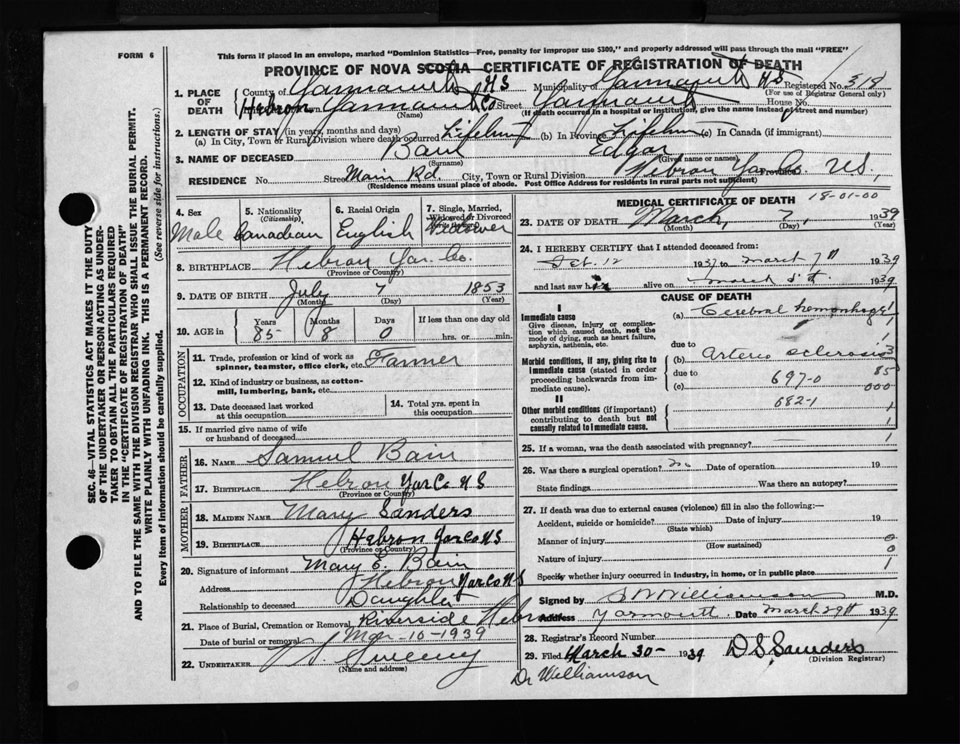 FORM 6
This form if placed in an envelope, marked "Dominion Statistics—Free, penalty for improper use $300," and properly addressed will pass through the mail "FREE"
PROVINCE OF NOVA SCOTIA—CERTIFICATE OF REGISTRATION OF DEATH
1. PLACE OF DEATH
County of Yarmouth NS Municipality of Yarmouth NS Registered No. 318
(For use of Registrar General only)
Hebron Town Yarmouth Co Street Yarmouth House No.
(Name) (If death occurred in a hospital or institution, give the name instead of street and number)
2. LENGTH OF STAY (in years, months and days)
(a) In City, Town or Rural Division where death occurred Lifetime (b) In Province Lifetime (c) In Canada (if immigrant)
3. NAME OF DECEASED Bain Edgar
(Surname) (Given name or names)
RESIDENCE No. Street Main Rd. City, Town or Rural Division Hebron Yar Co. NS. Province
(Residence means usual place of abode. Post Office Address for residents in rural parts not sufficient)
4. Sex Male
5. Nationality (Citizenship) Canadian
6. Racial Origin English
7. Single, Married, Widowed or Divorced Widower
8. BIRTHPLACE Hebron Yar. Co.
(Province or Country)
9. DATE OF BIRTH July 7 1853
(Month) (Day) (Year)
10. AGE in Years 85 Months 8 Days 0 If less than one day old hrs. or min.
OCCUPATION
11. Trade, profession or kind of work as spinner, teamster, office clerk, etc. Farmer
12. Kind of industry or business, as cotton-mill, lumbering, bank, etc.
13. Date deceased last worked at this occupation
14. Total yrs. spent in this occupation
15. If married give name of wife or husband of deceased
FATHER
16. NAME Samuel Bain
17. BIRTHPLACE Hebron Yar Co NS
(Province or Country)
MOTHER
18. MAIDEN NAME Mary Sanders
19. BIRTHPLACE Hebron Yar Co NS
(Province or Country)
20. Signature of informant Mary E. Bain
Address Hebron Yar Co NS
Relationship to deceased Daughter
21. Place of Burial, Cremation or Removal Riverside Hebron
Date of burial or removal Mar-10-1939
22. UNDERTAKER Sweeny
(Name and address)
MEDICAL CERTIFICATE OF DEATH
18-01-00
23. DATE OF DEATH March, 7, 1939
(Month) (Day) (Year)
24. I HEREBY CERTIFY that I attended deceased from:
Oct. 12 1937 to March 7th 1939
and last saw him alive on March 1939
CAUSE OF DEATH
I
Immediate cause
Give disease, injury or complication which caused death, not the mode of dying, such as heart failure, asphyxia, asthenia, etc.
(a) Cerebral hemorrhage 1
1
due to
Morbid conditions, if any, giving rise to immediate cause (stated in order proceeding backwards from immediate cause).
(b) Arterio sclerosis 3
due to 85
(c) 697-0 000
II
682-1
Other morbid conditions (if important) contributing to death but not causally related to immediate cause. 1
1
25. If a woman, was the death associated with pregnancy? 1
26. Was there a surgical operation? No Date of operation 19
State findings Was there an autopsy?
27. If death was due to external causes (violence) fill in also the following:—
Accident, suicide or homicide? Date of injury 19
(State which)
Manner of injury 0
(How sustained) 0
Nature of injury 1
Specify whether injury occurred in industry, in home, or in public place
Signed by Williamson M.D.
Address Yarmouth Date March 29th 1939
28. Registrar's Record Number
29. Filed March 30- 1939 D S Saunders
(Division Registrar)
Dr Williamson
SEC. 46—VITAL STATISTICS ACT MAKES IT THE DUTY
OF THE UNDERTAKER OR PERSON ACTING AS UNDER-
TAKER TO OBTAIN ALL THE PARTICULARS REQUIRED
IN THE "CERTIFICATE OF REGISTRATION OF DEATH"
AND TO FILE THE SAME WITH THE DIVISION REGISTRAR WHO SHALL ISSUE THE BURIAL PERMIT.
WRITE PLAINLY WITH UNFADING INK. THIS IS A PERMANENT RECORD.
Every item of information should be carefully supplied. (See reverse side for instructions.)